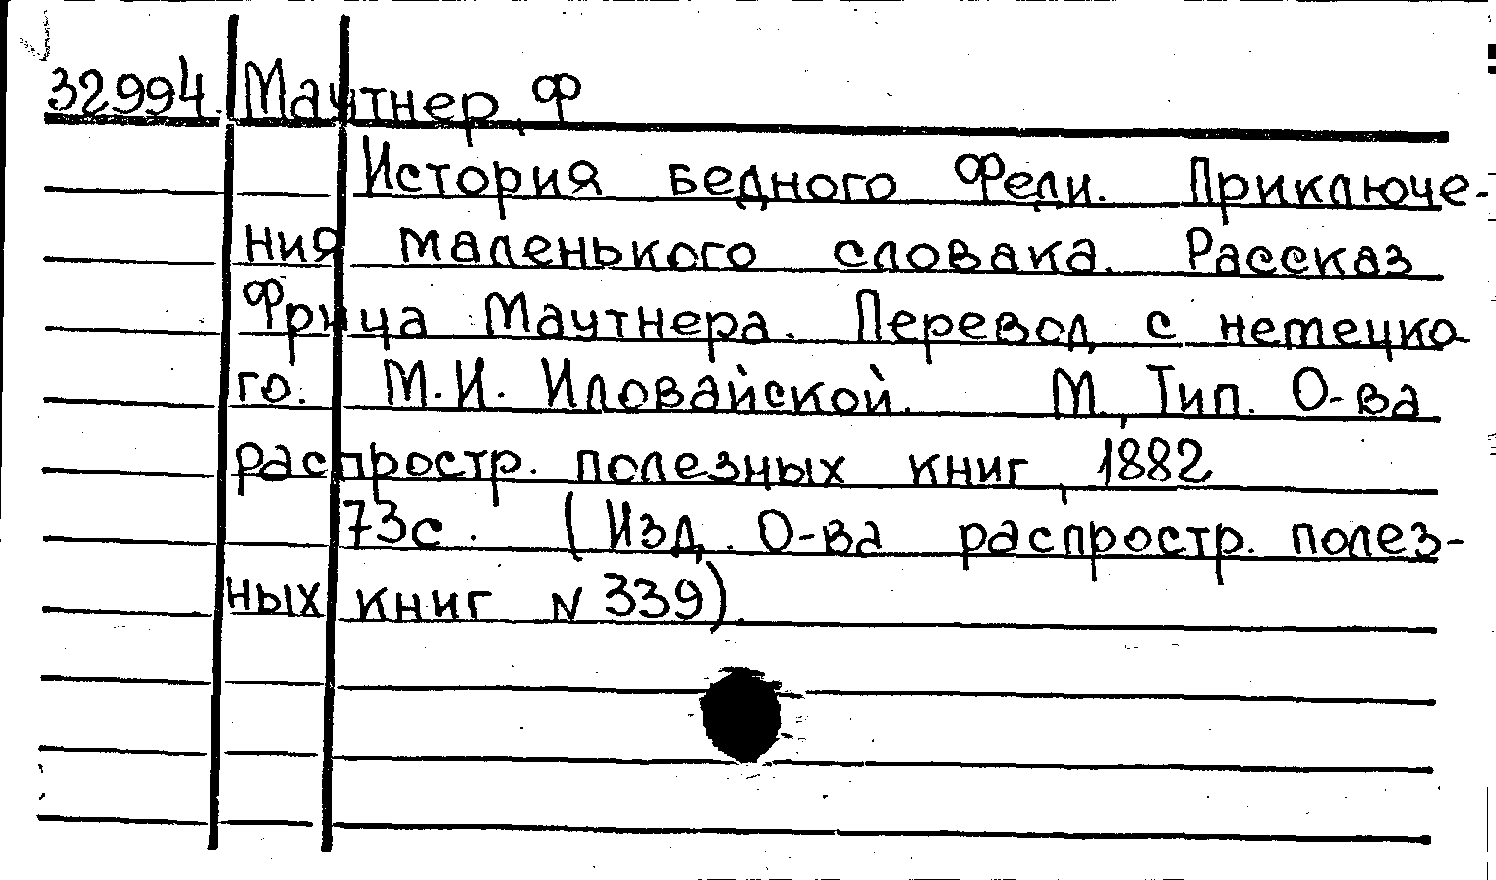 32994. Маутнер, Ф
История бедного Фели. Приключе-
ния маленького словака. Рассказ
Фрица Маутнера. Перевод с немецко-
го. М.И. Иловайской. М, Тип. О-ва
распростр. полезных книг, 1882
73с. (Изд. О-ва распростр. полез-
ных книг N 339).